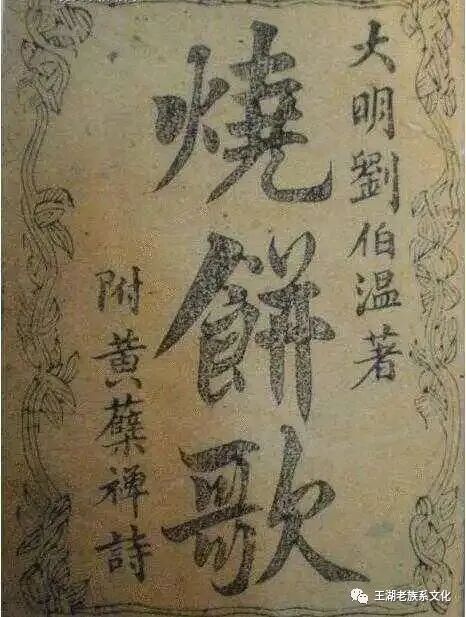 大明劉伯温著
燒餅歌
附黃蘗禅詩
王湖老族系文化